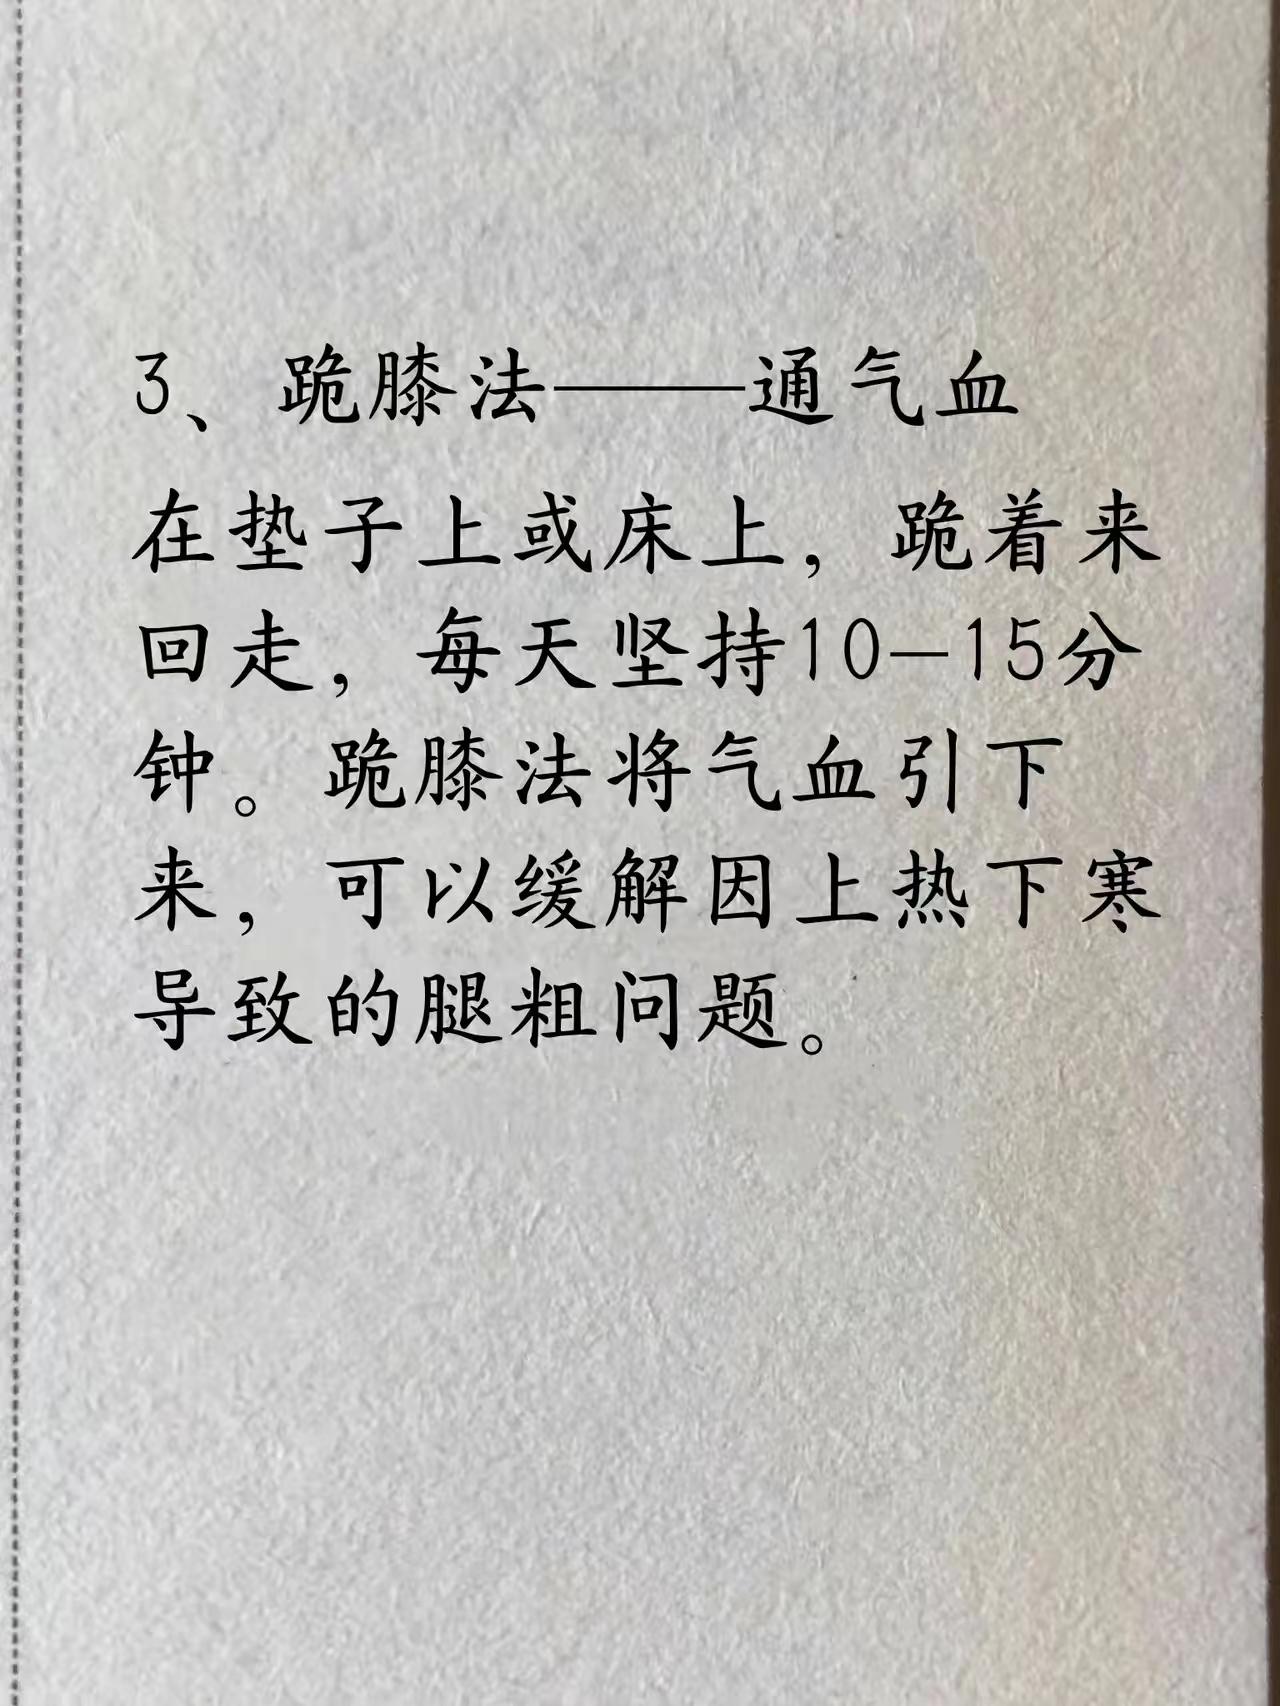 3、跪膝法——通气血
在垫子上或床上，跪着来
回走，每天坚持10-15分
钟。跪膝法将气血引下
来，可以缓解因上热下寒
导致的腿粗问题。